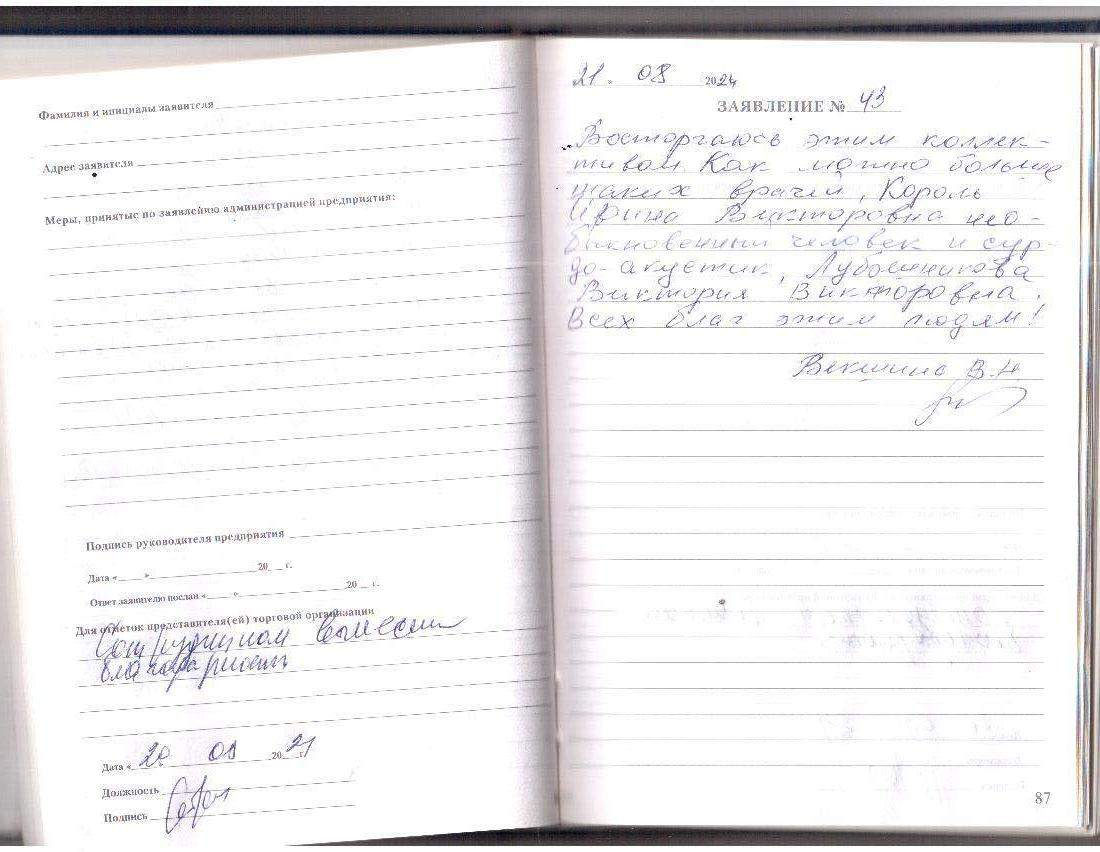 Фамилия и инициалы заявителя
Адрес заявителя
Меры, принятые по заявлению администрацией предприятия:
Подпись руководителя предприятия
Дата « » 20 г.
Ответ заявителю послан « » 20 г.
Для отметок представителя(ей) торговой организации
Сотрудникам вынесена
благодарность
Дата « 20 08 2021 г.
Должность
Подпись
21. 08 2024
ЗАЯВЛЕНИЕ № 43
Восторгаюсь этим коллек-
тивом. Как можно больше
таких врачей, Король
Ирина Викторовна нео-
быкновенный человек и сур-
до-акустик, Лубошникова
Виктория Викторовна.
Всех благ этим людям!
Векшина В.Н
87